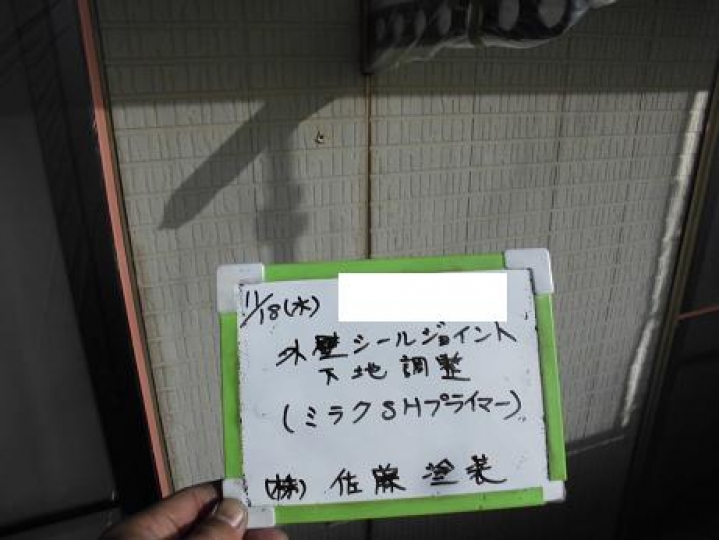 11/18(水)
外壁シールジョイント
下地調整
(ミラクSHプライマー)
(株) 佐藤塗装